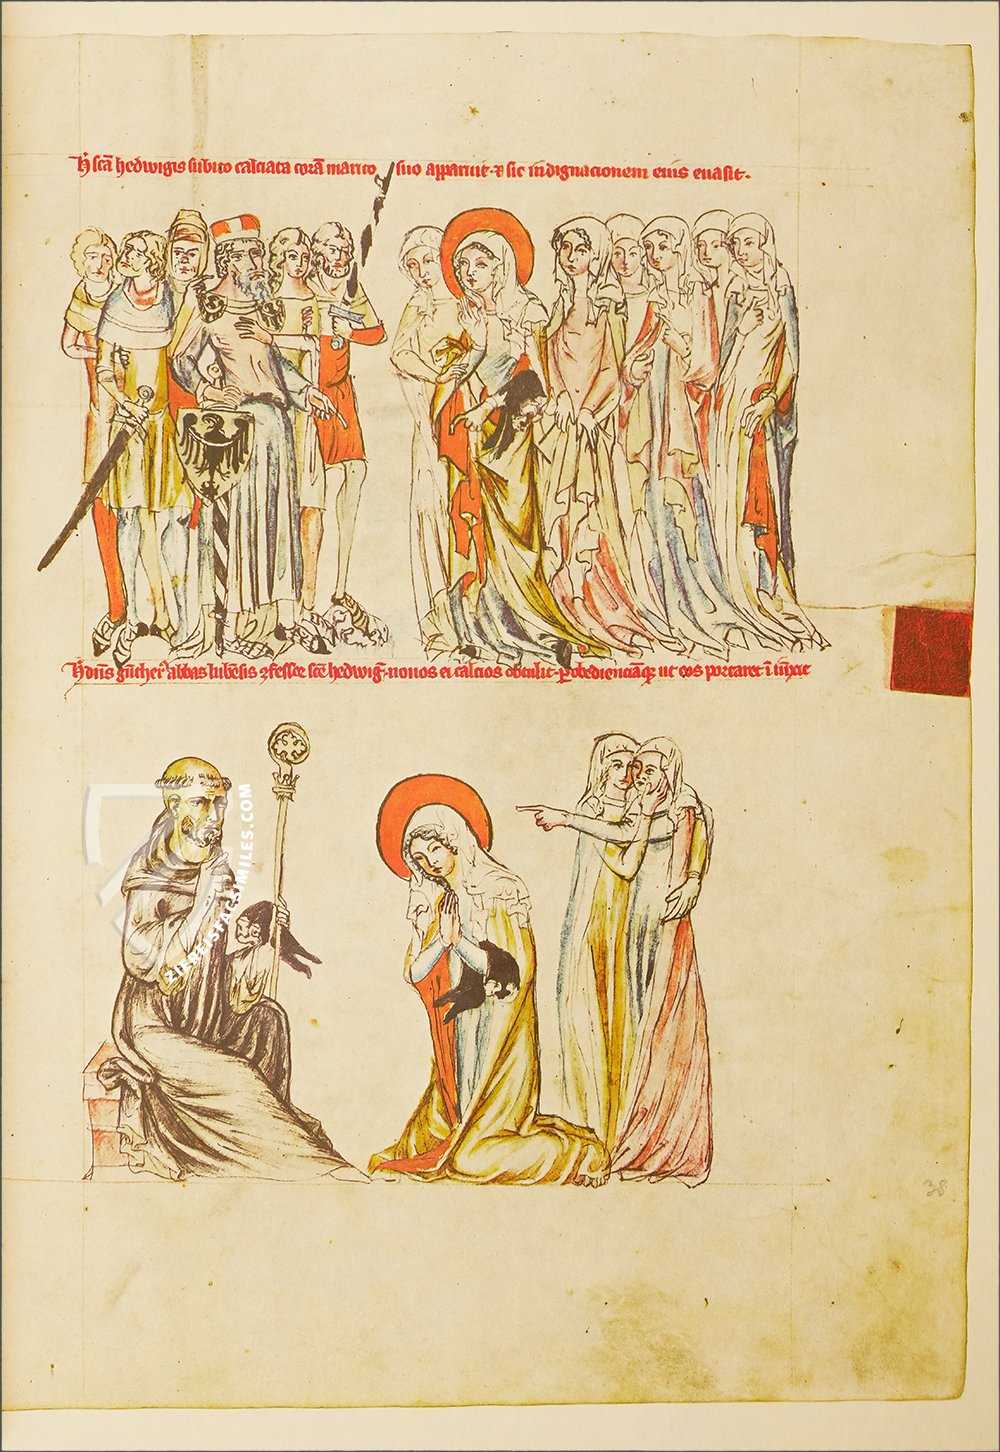 H̓ scā hedwigis subito calciata corā marito suo apparuit · ⁊ sic indignacionem eius euasit ·
H̓ dn̄s gūther' abbas lubēsis ꝯfessor scē hedwig̓ · nouos ei calcios obtulit · ꝑ obedienciāqꝫ ut eos portaret
ZIEREISFACSIMILES.COM
38